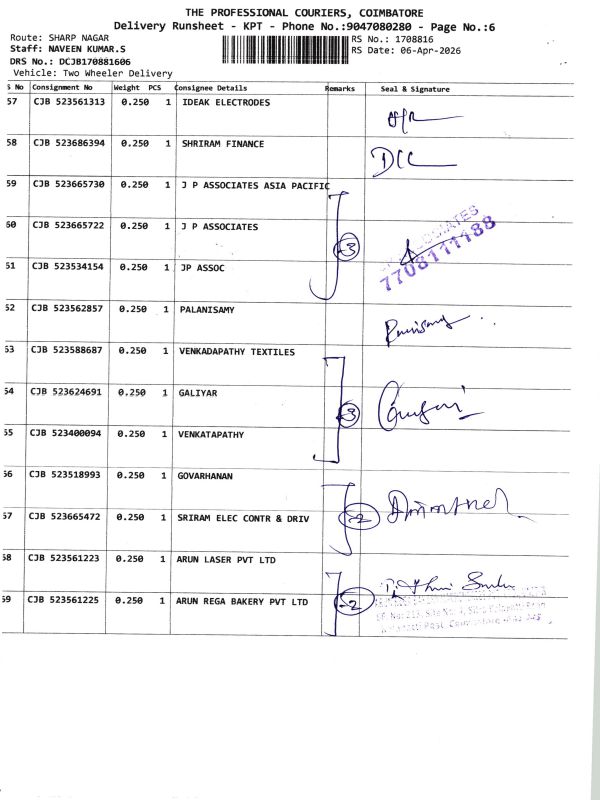 THE PROFESSIONAL COURIERS, COIMBATORE
Delivery Runsheet - KPT - Phone No.:9047080280 - Page No.:6
Route: SHARP NAGAR RS No.: 1708816
Staff: NAVEEN KUMAR.S RS Date: 06-Apr-2026
DRS No.: DCJB170881606
Vehicle: Two Wheeler Delivery
S No Consignment No Weight PCS Consignee Details Remarks Seal & Signature
57 CJB 523561313 0.250 1 IDEAK ELECTRODES
58 CJB 523686394 0.250 1 SHRIRAM FINANCE
59 CJB 523665730 0.250 1 J P ASSOCIATES ASIA PACIFIC
60 CJB 523665722 0.250 1 J P ASSOCIATES 3
7708111188
61 CJB 523534154 0.250 1 JP ASSOC
62 CJB 523562857 0.250 1 PALANISAMY
63 CJB 523588687 0.250 1 VENKADAPATHY TEXTILES
64 CJB 523624691 0.250 1 GALIYAR 3
65 CJB 523400094 0.250 1 VENKATAPATHY
66 CJB 523518993 0.250 1 GOVARHANAN
67 CJB 523665472 0.250 1 SRIRAM ELEC CONTR & DRIV 2
68 CJB 523561223 0.250 1 ARUN LASER PVT LTD
69 CJB 523561225 0.250 1 ARUN REGA BAKERY PVT LTD 2